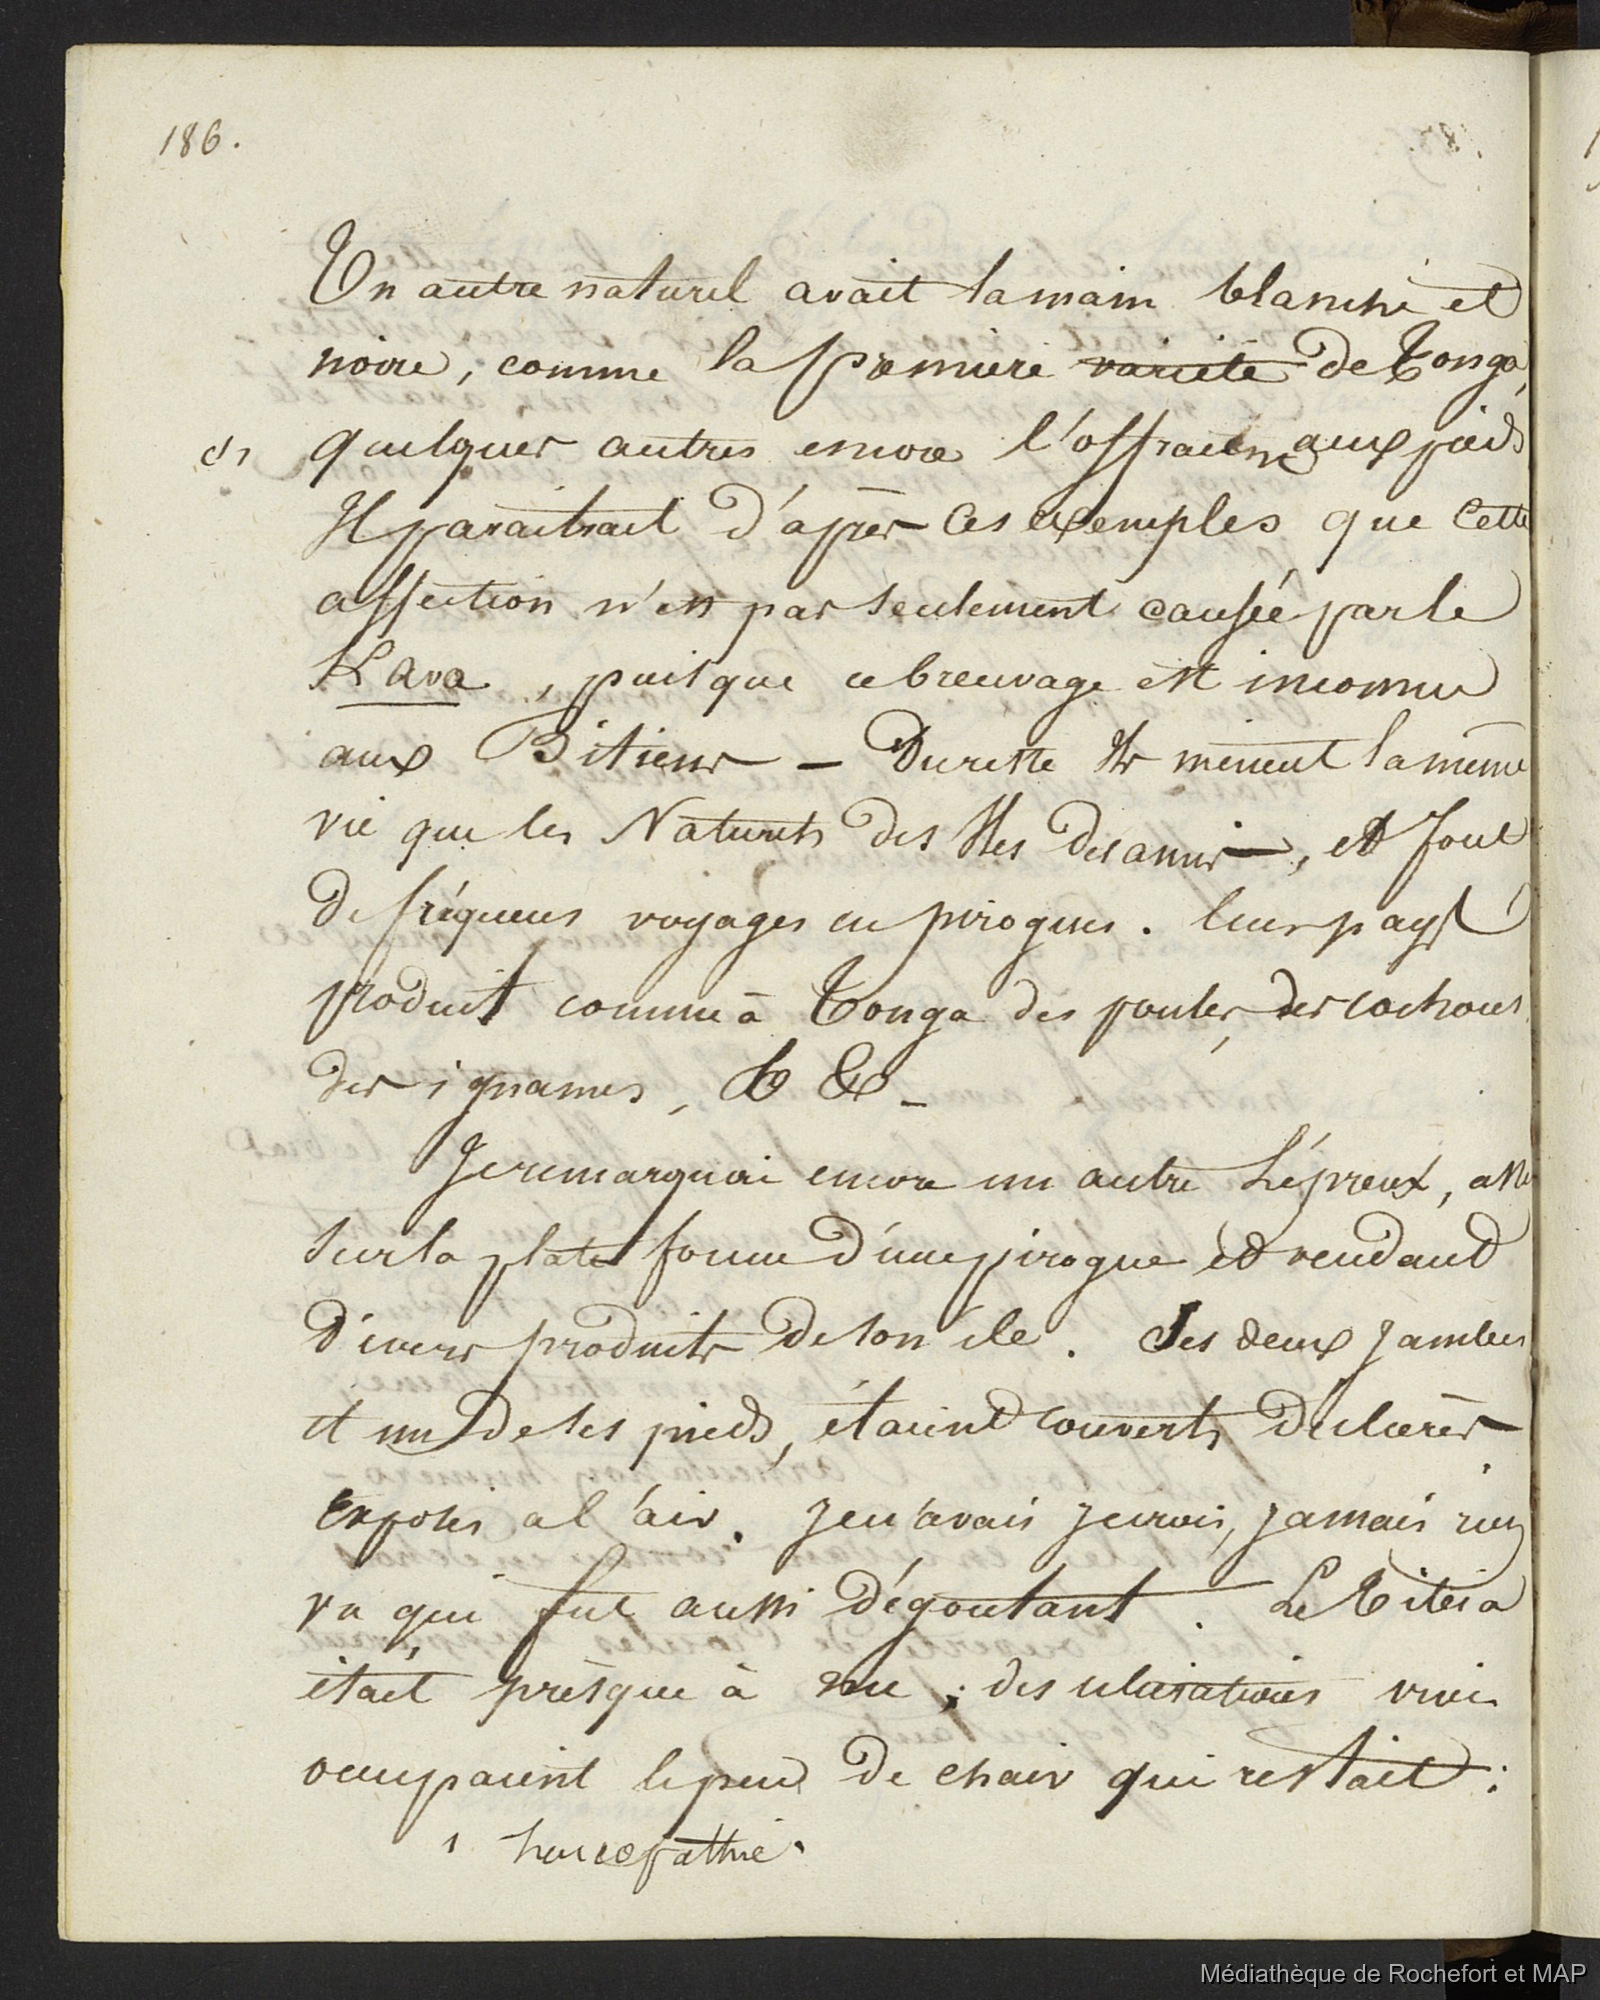 186.
Un autre naturel avait la main blanche et
noire, comme la premiere variété de Tonga,
et quelques autres encore l'offraient aux pieds
Il paraitrait d'àprès ces exemples que cette
affection n'est pas seulement causée par le
Kava, puisque ce breuvage est inconnu
aux Bitiens — Du reste ils mènent la même
vie que les Naturels des Iles des amis —, et font
de fréquens voyages en pirogues. leur pays
produit comme à Tonga des poules, des cochons
des ignames, & & _
Je remarquai encore un autre Lépreux, assis
sur la plate forme d'une pirogue et vendant
divers produits de son île. Ses deux jambes
et un de ses pieds, étaient couverts d'ulcères
exposés a l'air. Je n'avais je crois, jamais rien
vu qui fut aussi dégoutant. Le
était prèsque à nue ; des ulcérations vives
occupaient le peu de chair qui restait :
1
Médiathèque de Rochefort et MAP